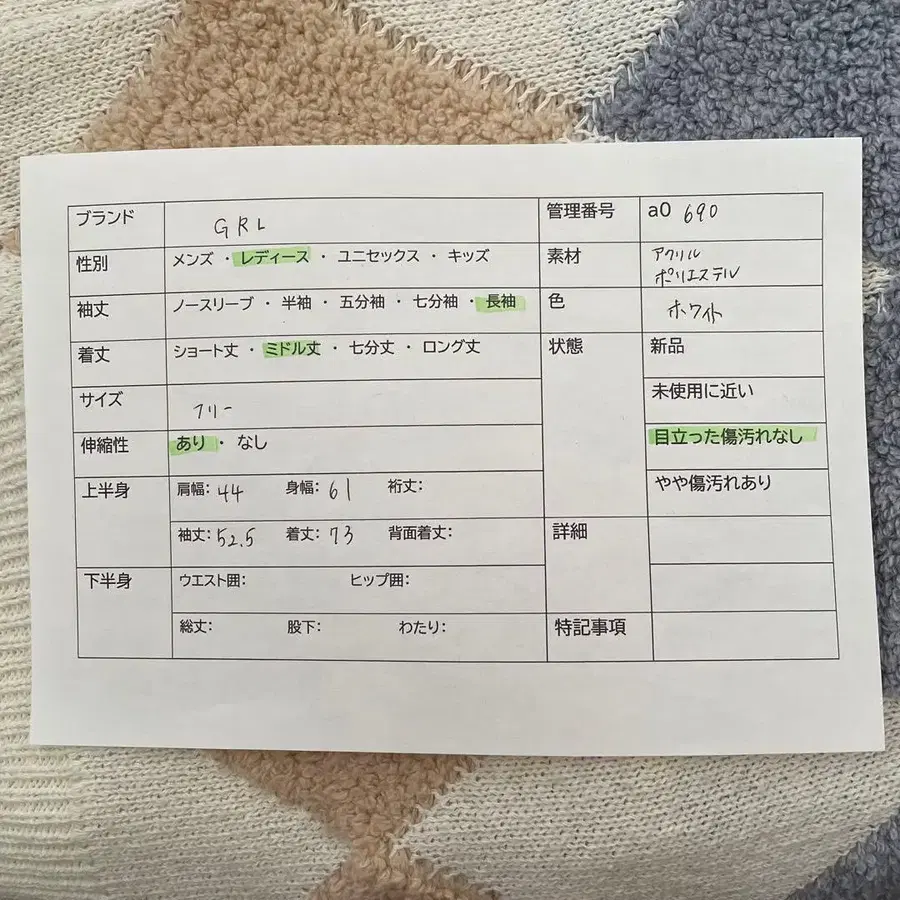 ブランド GRL 管理番号 a0 690
性別 メンズ ・ レディース ・ ユニセックス ・ キッズ 素材 アクリル
ポリエステル
袖丈 ノースリーブ ・ 半袖 ・ 五分袖 ・ 七分袖 ・ 長袖 色 ホワイト
着丈 ショート丈 ・ ミドル丈 ・ 七分丈 ・ ロング丈 状態 新品
サイズ フリー 未使用に近い
伸縮性 あり ・ なし 目立った傷汚れなし
上半身 肩幅: 44 身幅: 61 裄丈: やや傷汚れあり
袖丈: 52.5 着丈: 73 背面着丈: 詳細
下半身 ウエスト囲: ヒップ囲:
総丈: 股下: わたり: 特記事項